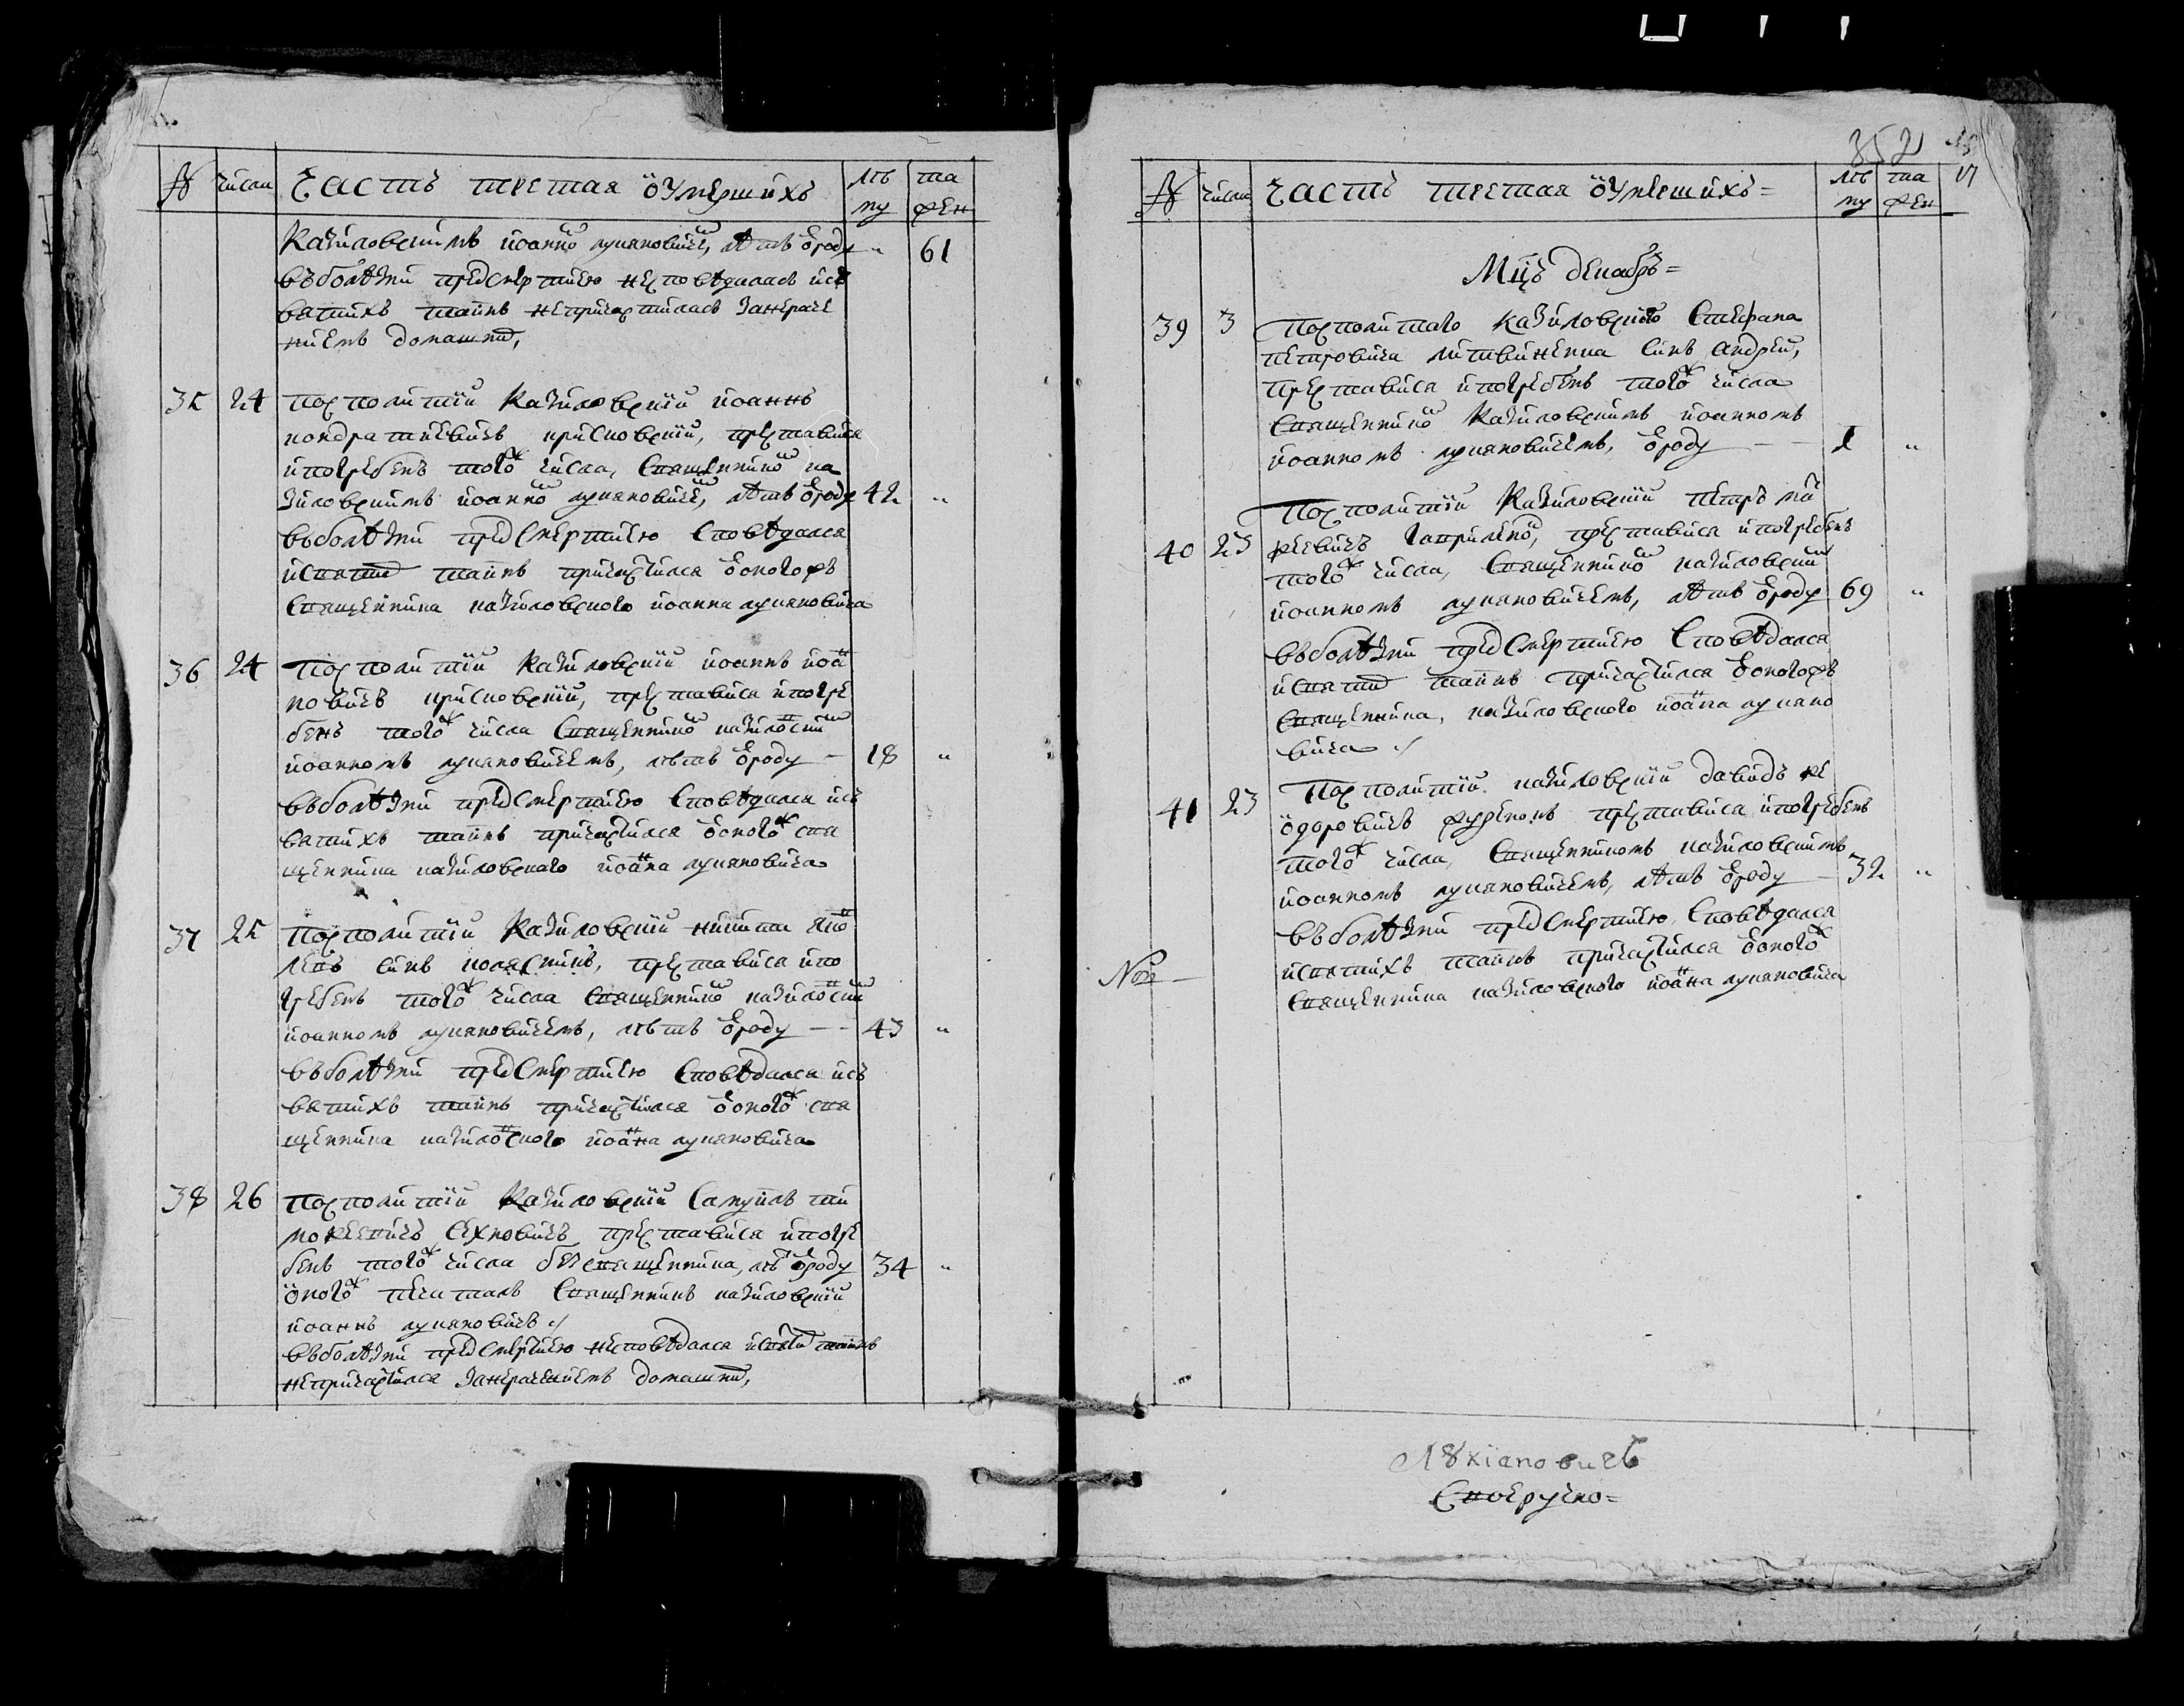 № числа Часть третая о умершихъ лѣ та
му жен
Казиловскимъ иоанно лукяновиче, лѣтъ ѿроду „ 61
въболѣзни предсмертию неповѣдалась исъ
ватихъ таинъ непричастилась занераче
ниемъ домашни,
35 24 Посполитий Казиловский иоаннъ
кондратиевичъ крисковский, преставися
ипогребенъ того числа, священнико ка
зиловскимъ иоанно лукяновиче, лѣтъ ѿроду 42 „
въболѣзни предсмертию сповѣдался
исвяти таинъ причастился ѿоного жъ
священника казиловского иоанна лукяновича
36 24 Посполитий Казиловский иоаннъ иоа
новичъ крисковский, преставися ипогре
бенъ того числа священнико казиловски
иоанномъ лукяновичемъ, лѣтъ ѿроду — 18 „
въболѣзни предсмертию сповѣдался исъ
ватихъ таинъ причастился ѿоного свя
щенника казиловскаго иоанна лукяновича
37 25 Посполитий Казиловский никита
синъ преставися ипо
гребенъ того числа священнико казиловски
иоанномъ лукяновичемъ, лѣтъ ѿроду — - 43 „
въболѣзни предсмертию сповѣдался исъ
ватихъ таинъ причастился ѿоного свя
щенника казиловского иоанна лукяновича
38 26 Посполитий Казиловский Самуилъ ти
мофеевичъ сахновичъ преставися ипогре
бенъ того числа безсвященника, лѣ ѿроду 34 „
оного печаталъ священникъ казиловский
иоаннъ лукяновичъ ./
въболѣзни предсмертию несповѣдался исвяти таинъ
непричастился занерачениемъ домашни,
352
17
№ числа Часть третая о умершихъ = лѣ та
му жен
Мцъ декабръ =
39 3 Посполитаго казиловского Стефана
петровича литвиненка синъ андрей,
преставися ипогребенъ того числа
священнико казиловскимъ иоанномъ
иоанномъ лукяновичемъ, ѿроду — - 1 „
Посполитий Казиловский петръ
40 23 гавриленко, преставися ипогребенъ
того числа, священнико казиловски
иоанномъ лукяновичемъ, лѣтъ ѿроду 69 „
въболѣзни предсмертию сповѣдался
исвяти таинъ причастился ѿоного жъ
священника, казиловского иоанна лукяно
вича ./
Посполитий казиловский давидъ фе
41 23 одоровичъ преставися ипогребенъ
того числа, священникомъ казиловскимъ
иоанномъ лукяновичемъ, лѣтъ ѿроду — 32 „
въболѣзни предсмертию сповѣдался
исватихъ таинъ причастился ѿоного
священника казиловского иоанна лукяновича
Лꙋкіановичъ
Своеручно =